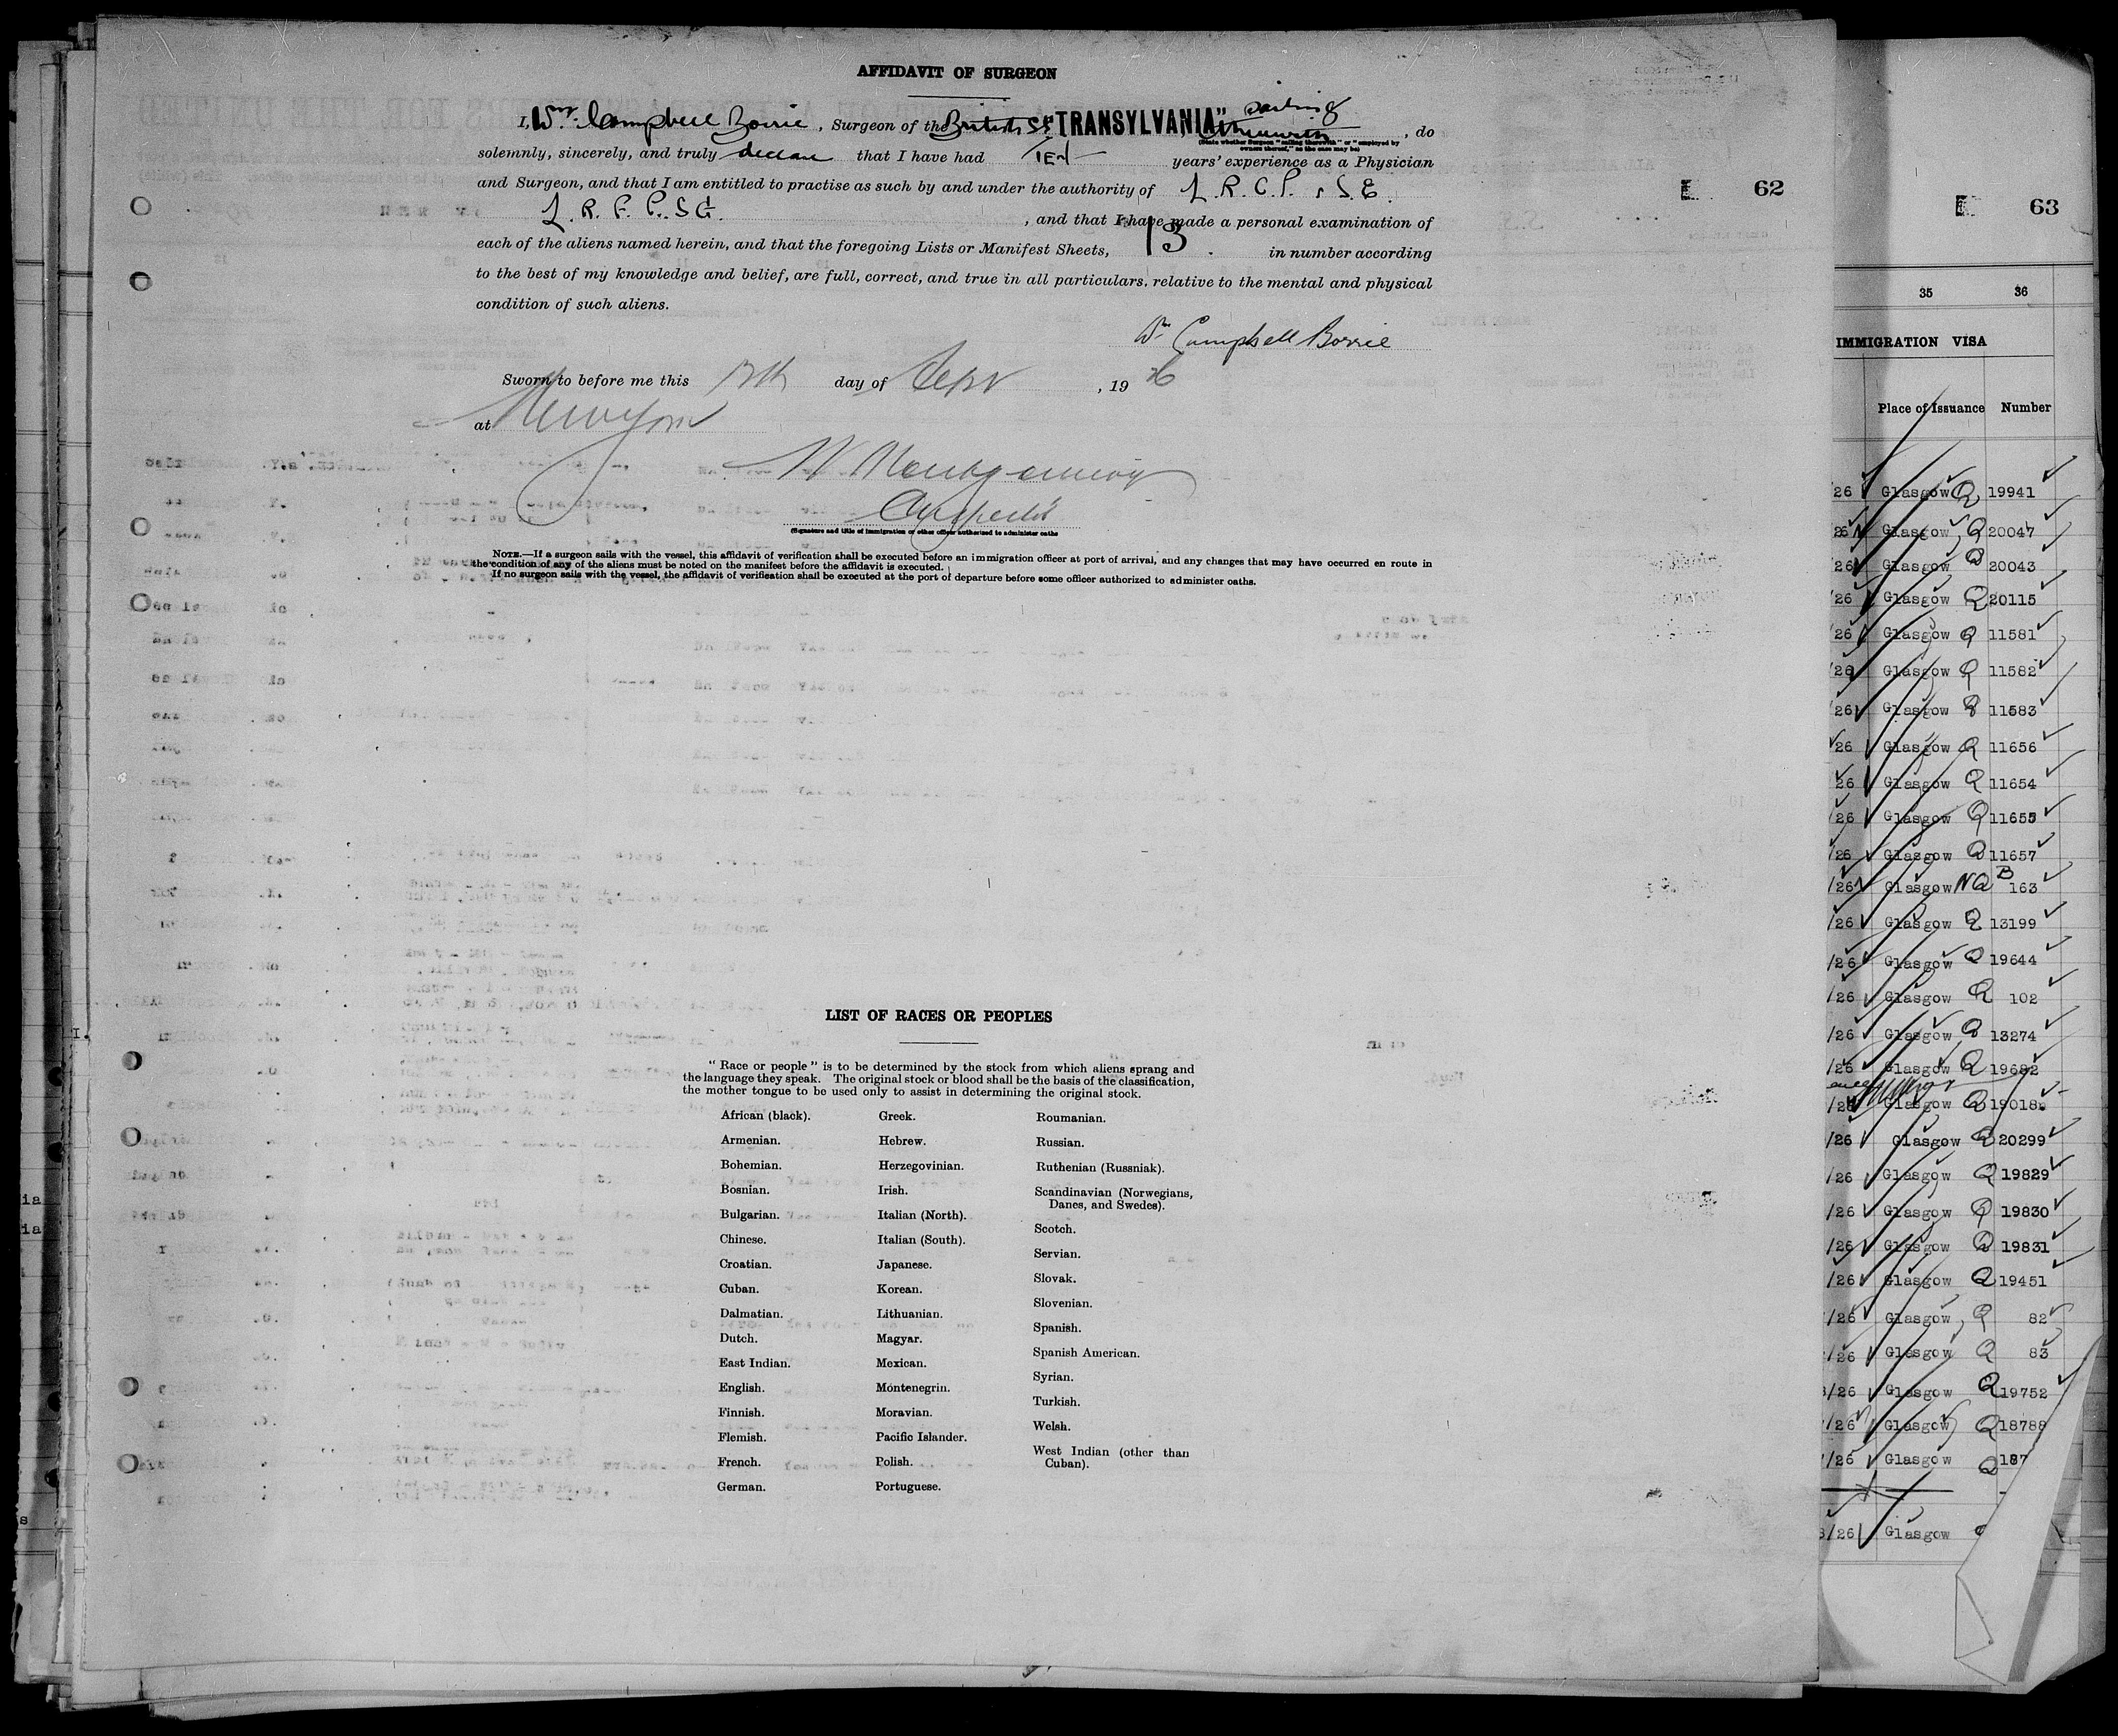 AFFIDAVIT OF SURGEON
I, Wm. Campbell Borrie, Surgeon of the British SS "TRANSYLVANIA" sailing therewith, do
(State whether Surgeon "sailing therewith" or "employed by
owners thereof," as the case may be)
solemnly, sincerely, and truly declare that I have had TEN years' experience as a Physician
and Surgeon, and that I am entitled to practise as such by and under the authority of L. R. C. P. & S. E.
L. R. F. P. S. G. , and that I have made a personal examination of
each of the aliens named herein, and that the foregoing Lists or Manifest Sheets, 13 in number according
to the best of my knowledge and belief, are full, correct, and true in all particulars, relative to the mental and physical
condition of such aliens.
Wm Campbell Borrie
Sworn to before me this day of Sept , 19 26
at New York
W Montgomery
(Signature and title of immigration or other officer authorized to administer oaths
NOTE.—If a surgeon sails with the vessel, this affidavit of verification shall be executed before an immigration officer at port of arrival, and any changes that may have occurred en route in
the condition of any of the aliens must be noted on the manifest before the affidavit is executed.
If no surgeon sails with the vessel, the affidavit of verification shall be executed at the port of departure before some officer authorized to administer oaths.
LIST OF RACES OR PEOPLES
"Race or people" is to be determined by the stock from which aliens sprang and
the language they speak. The original stock or blood shall be the basis of the classification,
the mother tongue to be used only to assist in determining the original stock.
African (black).
Armenian.
Bohemian.
Bosnian.
Bulgarian.
Chinese.
Croatian.
Cuban.
Dalmatian.
Dutch.
East Indian.
English.
Finnish.
Flemish.
French.
German.
Greek.
Hebrew.
Herzegovinian.
Irish.
Italian (North).
Italian (South).
Japanese.
Korean.
Lithuanian.
Magyar.
Mexican.
Montenegrin.
Moravian.
Pacific Islander.
Polish.
Portuguese.
Roumanian.
Russian.
Ruthenian (Russniak).
Scandinavian (Norwegians,
Danes, and Swedes).
Scotch.
Servian.
Slovak.
Slovenian.
Spanish.
Spanish American.
Syrian.
Turkish.
Welsh.
West Indian (other than
Cuban).
62
63
35 36
IMMIGRATION VISA
Place of Issuance Number
26 Glasgow Q 19941
26 Glasgow Q 20047
26 Glasgow Q 20043
26 Glasgow Q 20115
26 Glasgow Q 11581
26 Glasgow Q 11582
26 Glasgow Q 11583
26 Glasgow Q 11656
26 Glasgow Q 11654
26 Glasgow Q 11655
/26 Glasgow Q 11657
/26 Glasgow NQ B 163
/26 Glasgow Q 13199
/26 Glasgow Q 19644
/26 Glasgow Q 102
/26 Glasgow Q 13274
/26 Glasgow Q 19682
/26 Glasgow Q 19018
/26 Glasgow Q 20299
/26 Glasgow Q 19829
/26 Glasgow Q 19830
/26 Glasgow Q 19831
/26 Glasgow Q 19451
/26 Glasgow Q 82
/26 Glasgow Q 83
/26 Glasgow Q 19752
/26 Glasgow Q 18788
/26 Glasgow Q 187
/26 Glasgow